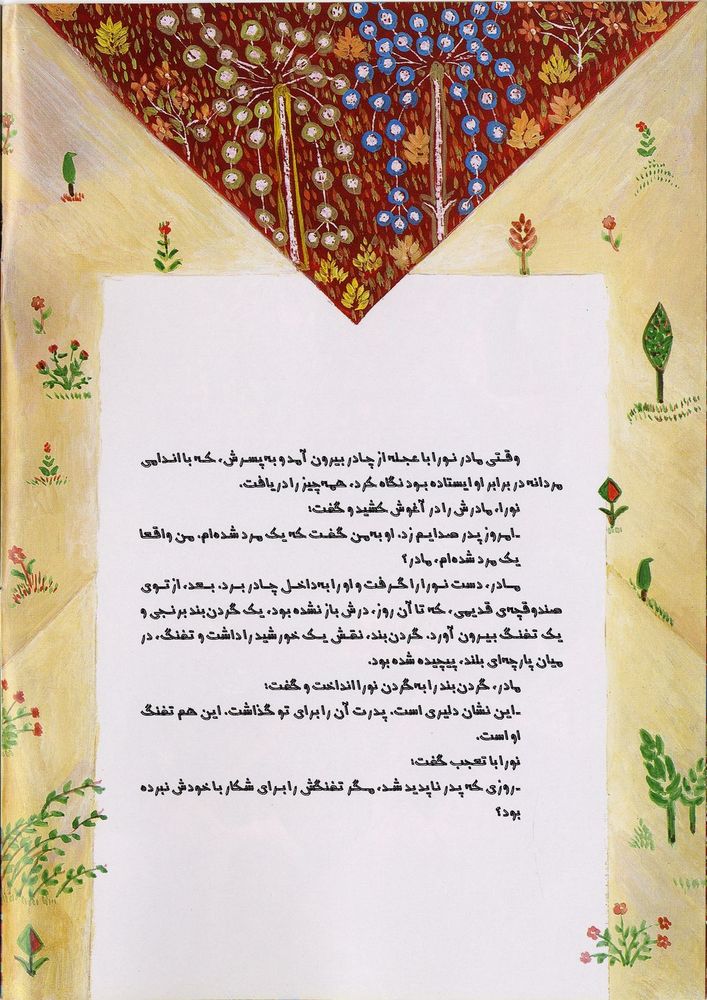 وقتی مادر نورا با عجله از چادر بیرون آمد و به پسرش، که با اندامی
مردانه در برابر او ایستاده بود نگاه کرد، همه‌چیز را دریافت.
نورا، مادرش را در آغوش کشید و گفت:
ـ امروز پدر صدایم زد. او به من گفت که یک مرد شده‌ام. من واقعا
یک مرد شده‌ام، مادر؟
مادر، دست نورا را گرفت و او را به داخل چادر برد. بعد، از توی
صندوقچه‌ی قدیمی، که تا آن روز، درش باز نشده بود، یک گردن‌بند برنجی و
یک تفنگ بیرون آورد. گردن‌بند، نقش یک خورشید را داشت و تفنگ، در
میان پارچه‌ای بلند، پیچیده شده بود.
مادر، گردن‌بند را به گردن نورا انداخت و گفت:
ـ این نشان دلیری است. پدرت آن را برای تو گذاشت. این هم تفنگ
او است.
نورا با تعجب گفت:
ـ روزی که پدر ناپدید شد، مگر تفنگش را برای شکار با خودش نبرده
بود؟